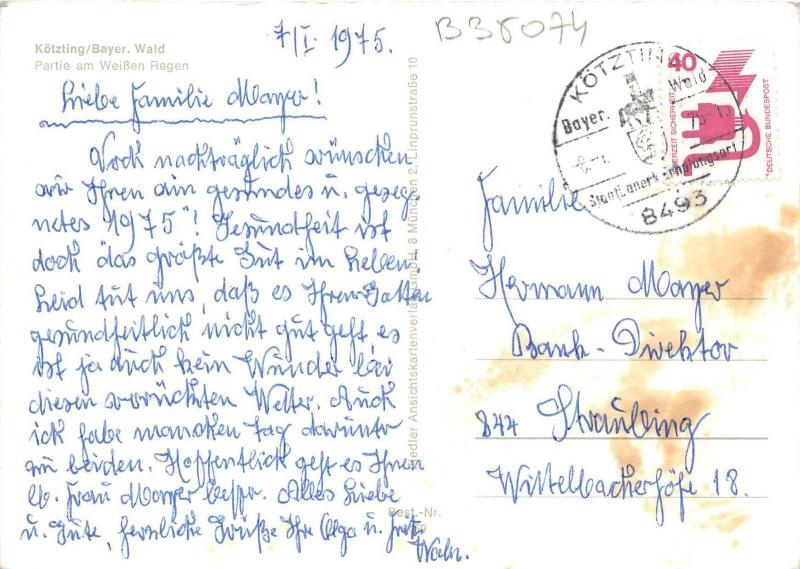 Kötzting/Bayer. Wald
Partie am Weißen Regen
7/I. 1975.
B35074
Liebe Familie Mayer!
Noch nachträglich wünschen
wir Ihnen ein gesundes u. geseg-
netes 1975"! Gesundheit ist
doch das größte Gut im Leben!
Leid tut uns, daß es Ihrem Gatten
gesundheitlich nicht gut geht, es
ist ja auch kein Wunder bei
diesem verrückten Wetter. Auch
ich habe manchen Tag darunter
zu leiden. Hoffentlich geht es Ihnen
lb. Frau Mayer besser. Alles Liebe
u. Gute, herzliche Grüße Ihre Olga u. Fritz
Ansichtskartenverlag GmbH, 8 München 2, Linprunstraße 10
Best.-Nr.
KÖTZTING
Bayer. Wald
Staatl. anerk. Erholungsort
8493
40
JEDERZEIT SICHERHEIT
DEUTSCHE BUNDESPOST
Familie
Hermann Mayer
Bank-Direktor
844 Straubing
Wittelbacherhöfe 18.